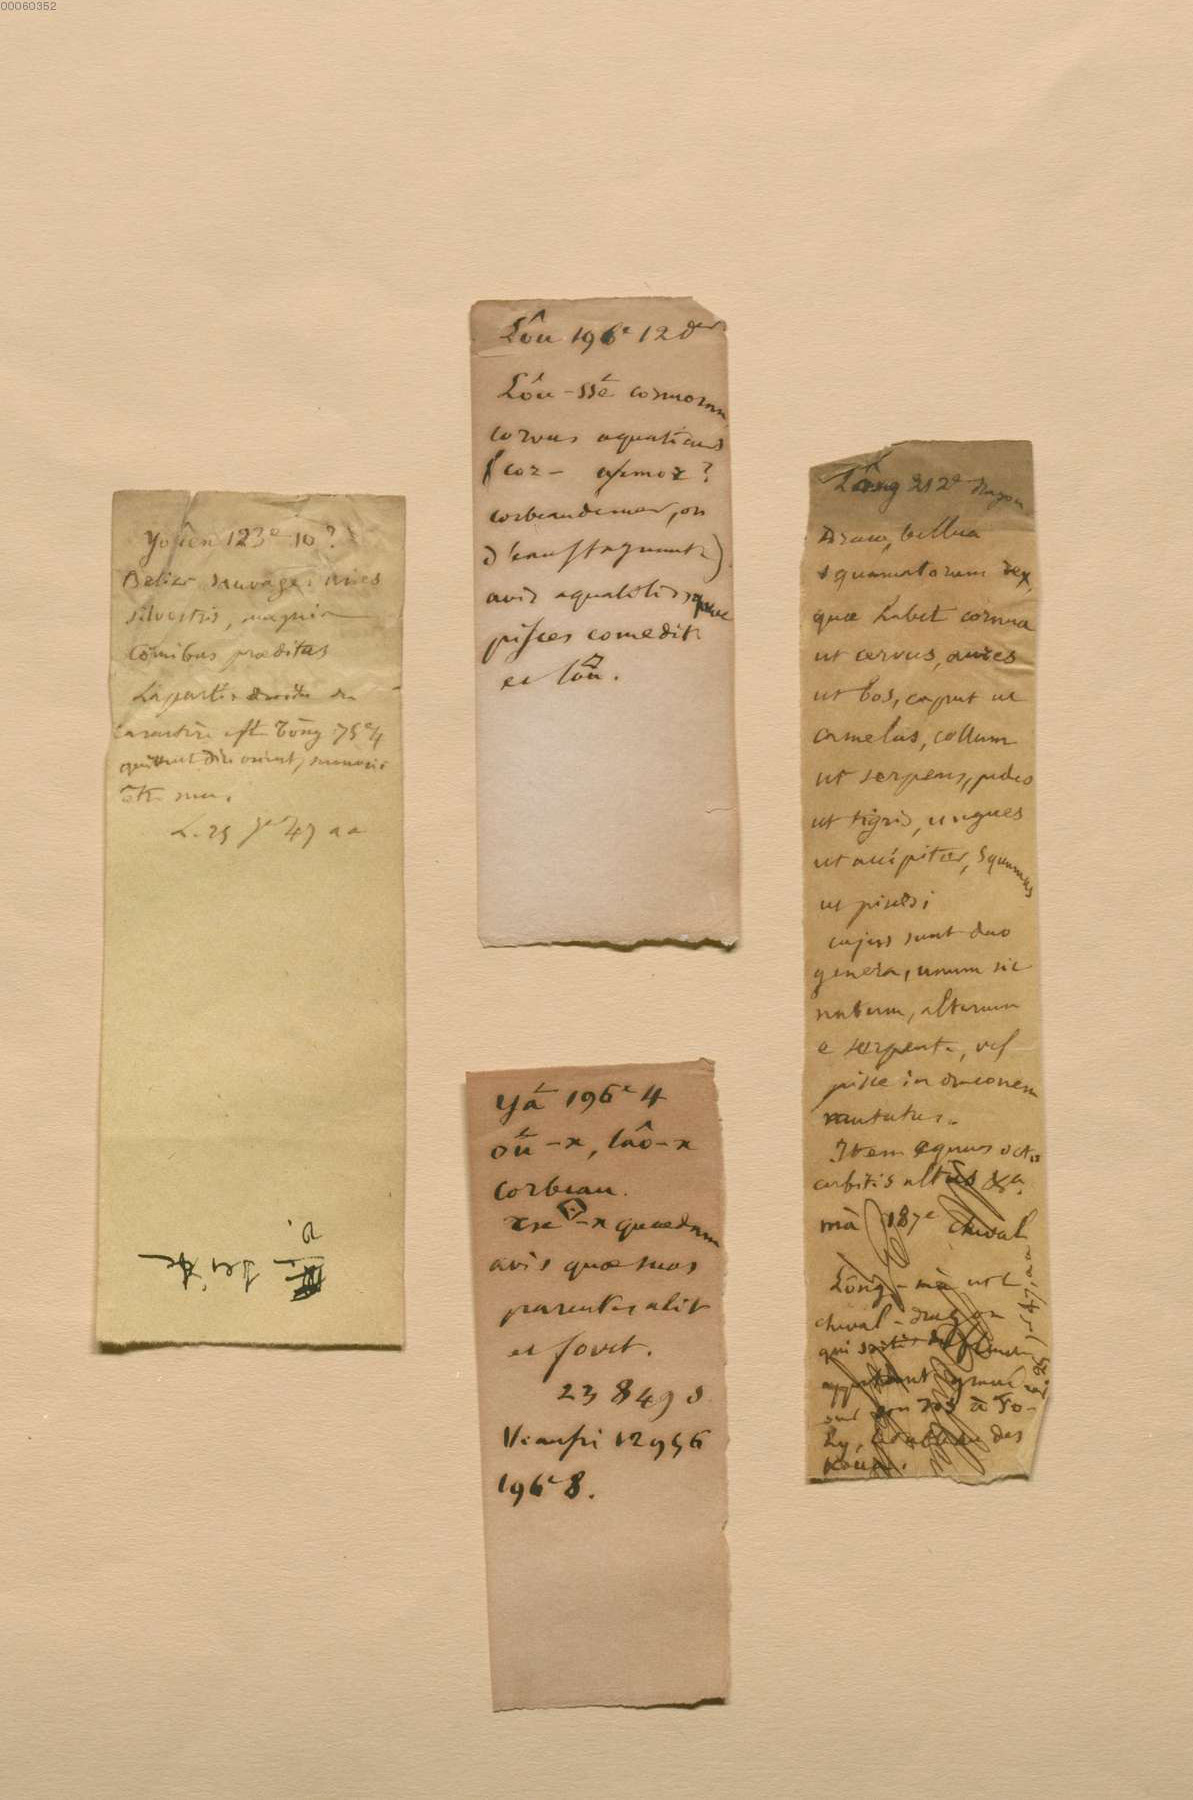 00060352
Yuên 123e 10?
Belier sauvage. aries
silvestris, magnis
cornibus præditus
La partie droite du
caractère est Tōng 75e 4
L. 25
Lôu 196e 12 der
Lôu-ssê cormoran
corvus aquaticus
(cor- marmor?
corbeau de mer, ou
d'eau stagnante)
avis aquatilis quæ
pisces comedit
et lôu.
Yâ 196e 4
oû-x, lâo-x
corbeau.
x quædam
avis quæ suos
parentes alit
et fovet.
23 849 8
12956
196e 8.
Lông 212e dragon
Draco, bellua
squamatorum rex,
quæ habet cornua
ut cervus, aures
ut bos, caput ut
camelus, collum
ut serpens, pedes
ut tigris, ungues
ut accipiter, squamas
ut pisces;
cujus sunt duo
genera, unum sic
natum, alterum
e serpente, vel
pisce in draconem
mutatus.
Item equus octo
cubitis altus &a
mà 187e cheval
Lông-mà
cheval-dragon
qui
sur son dos à Fo-
hy, le tableau des
koúa.